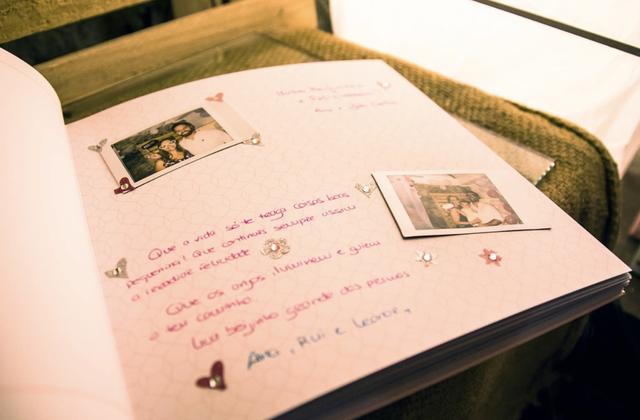 Que a vida só te traga coisas boas
pequenina! Que continues sempre assim
a irradiar felicidade
Que os anjos iluminem e guiem
o teu caminho.
Um beijinho grande dos primos
Ana, Rui e Leonor,